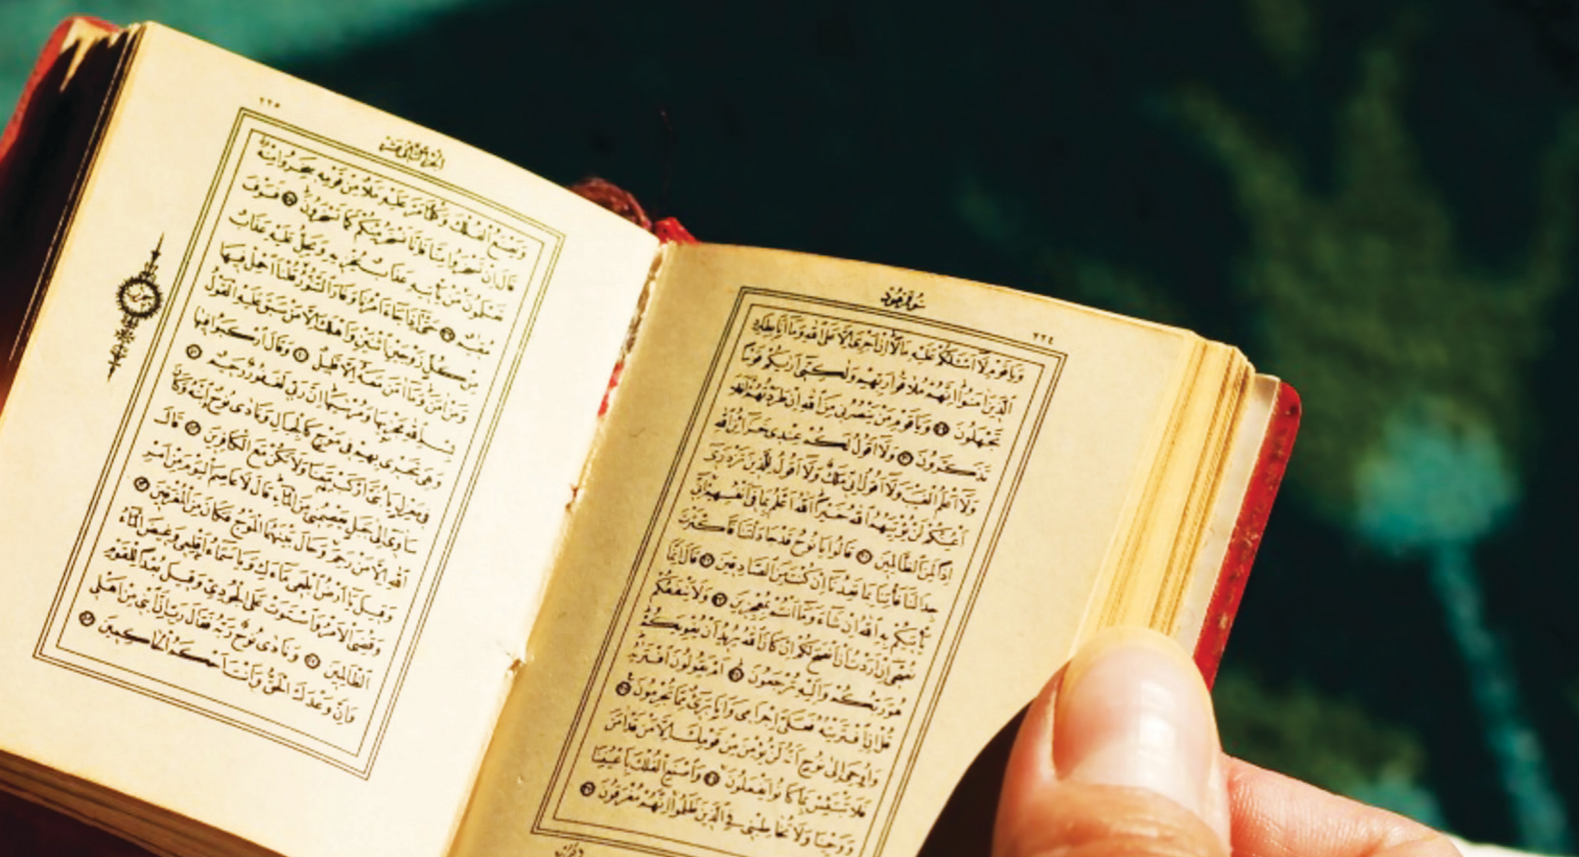 سورة هود ٢٢٤
وَيَاقَوْمِ لَا أَسْئَلُكُمْ عَلَيْهِ مَالًا إِنْ أَجْرِيَ إِلَّا عَلَى اللَّهِ وَمَا أَنَا بِطَارِدِ
الَّذِينَ آمَنُوا إِنَّهُمْ مُلَاقُوا رَبِّهِمْ وَلَكِنِّي أَرَيكُمْ قَوْمًا
تَجْهَلُونَ وَيَاقَوْمِ مَنْ يَنْصُرُنِي مِنَ اللَّهِ إِنْ طَرَدْتُهُمْ أَفَلَا
تَذَكَّرُونَ وَلَا أَقُولُ لَكُمْ عِنْدِي خَزَائِنُ اللَّهِ
وَلَا أَعْلَمُ الْغَيْبَ وَلَا أَقُولُ إِنِّي مَلَكٌ وَلَا أَقُولُ لِلَّذِينَ تَزْدَرِي
أَعْيُنُكُمْ لَنْ يُؤْتِيَهُمُ اللَّهُ خَيْرًا اللَّهُ أَعْلَمُ بِمَا فِي أَنْفُسِهِمْ إِنِّي
إِذًا لَمِنَ الظَّالِمِينَ قَالُوا يَا نُوحُ قَدْ جَادَلْتَنَا فَأَكْثَرْتَ
جِدَالَنَا فَأْتِنَا بِمَا تَعِدُنَا إِنْ كُنْتَ مِنَ الصَّادِقِينَ قَالَ إِنَّمَا
يَأْتِيكُمْ بِهِ اللَّهُ إِنْ شَاءَ وَمَا أَنْتُمْ بِمُعْجِزِينَ وَلَا يَنْفَعُكُمْ
نُصْحِي إِنْ أَرَدْتُ أَنْ أَنْصَحَ لَكُمْ إِنْ كَانَ اللَّهُ يُرِيدُ أَنْ يُغْوِيَكُمْ
هُوَ رَبُّكُمْ وَإِلَيْهِ تُرْجَعُونَ أَمْ يَقُولُونَ افْتَرَيهُ
قُلْ إِنِ افْتَرَيْتُهُ فَعَلَيَّ إِجْرَامِي وَأَنَا بَرِيءٌ مِمَّا تُجْرِمُونَ
وَأُوحِيَ إِلَى نُوحٍ أَنَّهُ لَنْ يُؤْمِنَ مِنْ قَوْمِكَ إِلَّا مَنْ قَدْ آمَنَ
فَلَا تَبْتَئِسْ بِمَا كَانُوا يَفْعَلُونَ وَاصْنَعِ الْفُلْكَ بِأَعْيُنِنَا
وَوَحْيِنَا وَلَا تُخَاطِبْنِي فِي الَّذِينَ ظَلَمُوا إِنَّهُمْ مُغْرَقُونَ
٢٢٥ الجزء الثاني عشر
وَيَصْنَعُ الْفُلْكَ وَكُلَّمَا مَرَّ عَلَيْهِ مَلَأٌ مِنْ قَوْمِهِ سَخِرُوا مِنْهُ
قَالَ إِنْ تَسْخَرُوا مِنَّا فَإِنَّا نَسْخَرُ مِنْكُمْ كَمَا تَسْخَرُونَ فَسَوْفَ
تَعْلَمُونَ مَنْ يَأْتِيهِ عَذَابٌ يُخْزِيهِ وَيَحِلُّ عَلَيْهِ عَذَابٌ
مُقِيمٌ حَتَّى إِذَا جَاءَ أَمْرُنَا وَفَارَ التَّنُّورُ قُلْنَا احْمِلْ فِيهَا
مِنْ كُلٍّ زَوْجَيْنِ اثْنَيْنِ وَأَهْلَكَ إِلَّا مَنْ سَبَقَ عَلَيْهِ الْقَوْلُ
وَمَنْ آمَنَ وَمَا آمَنَ مَعَهُ إِلَّا قَلِيلٌ وَقَالَ ارْكَبُوا فِيهَا
بِسْمِ اللَّهِ مَجْرَيهَا وَمُرْسَيهَا إِنَّ رَبِّي لَغَفُورٌ رَحِيمٌ
وَهِيَ تَجْرِي بِهِمْ فِي مَوْجٍ كَالْجِبَالِ وَنَادَى نُوحٌ ابْنَهُ وَكَانَ
فِي مَعْزِلٍ يَا بُنَيَّ ارْكَبْ مَعَنَا وَلَا تَكُنْ مَعَ الْكَافِرِينَ قَالَ
سَآوِي إِلَى جَبَلٍ يَعْصِمُنِي مِنَ الْمَاءِ قَالَ لَا عَاصِمَ الْيَوْمَ مِنْ أَمْرِ
اللَّهِ إِلَّا مَنْ رَحِمَ وَحَالَ بَيْنَهُمَا الْمَوْجُ فَكَانَ مِنَ الْمُغْرَقِينَ
وَقِيلَ يَا أَرْضُ ابْلَعِي مَاءَكِ وَيَا سَمَاءُ أَقْلِعِي وَغِيضَ الْمَاءُ
وَقُضِيَ الْأَمْرُ وَاسْتَوَتْ عَلَى الْجُودِيِّ وَقِيلَ بُعْدًا لِلْقَوْمِ
الظَّالِمِينَ وَنَادَى نُوحٌ رَبَّهُ فَقَالَ رَبِّ إِنَّ ابْنِي مِنْ أَهْلِي
وَإِنَّ وَعْدَكَ الْحَقُّ وَأَنْتَ أَحْكَمُ الْحَاكِمِينَ